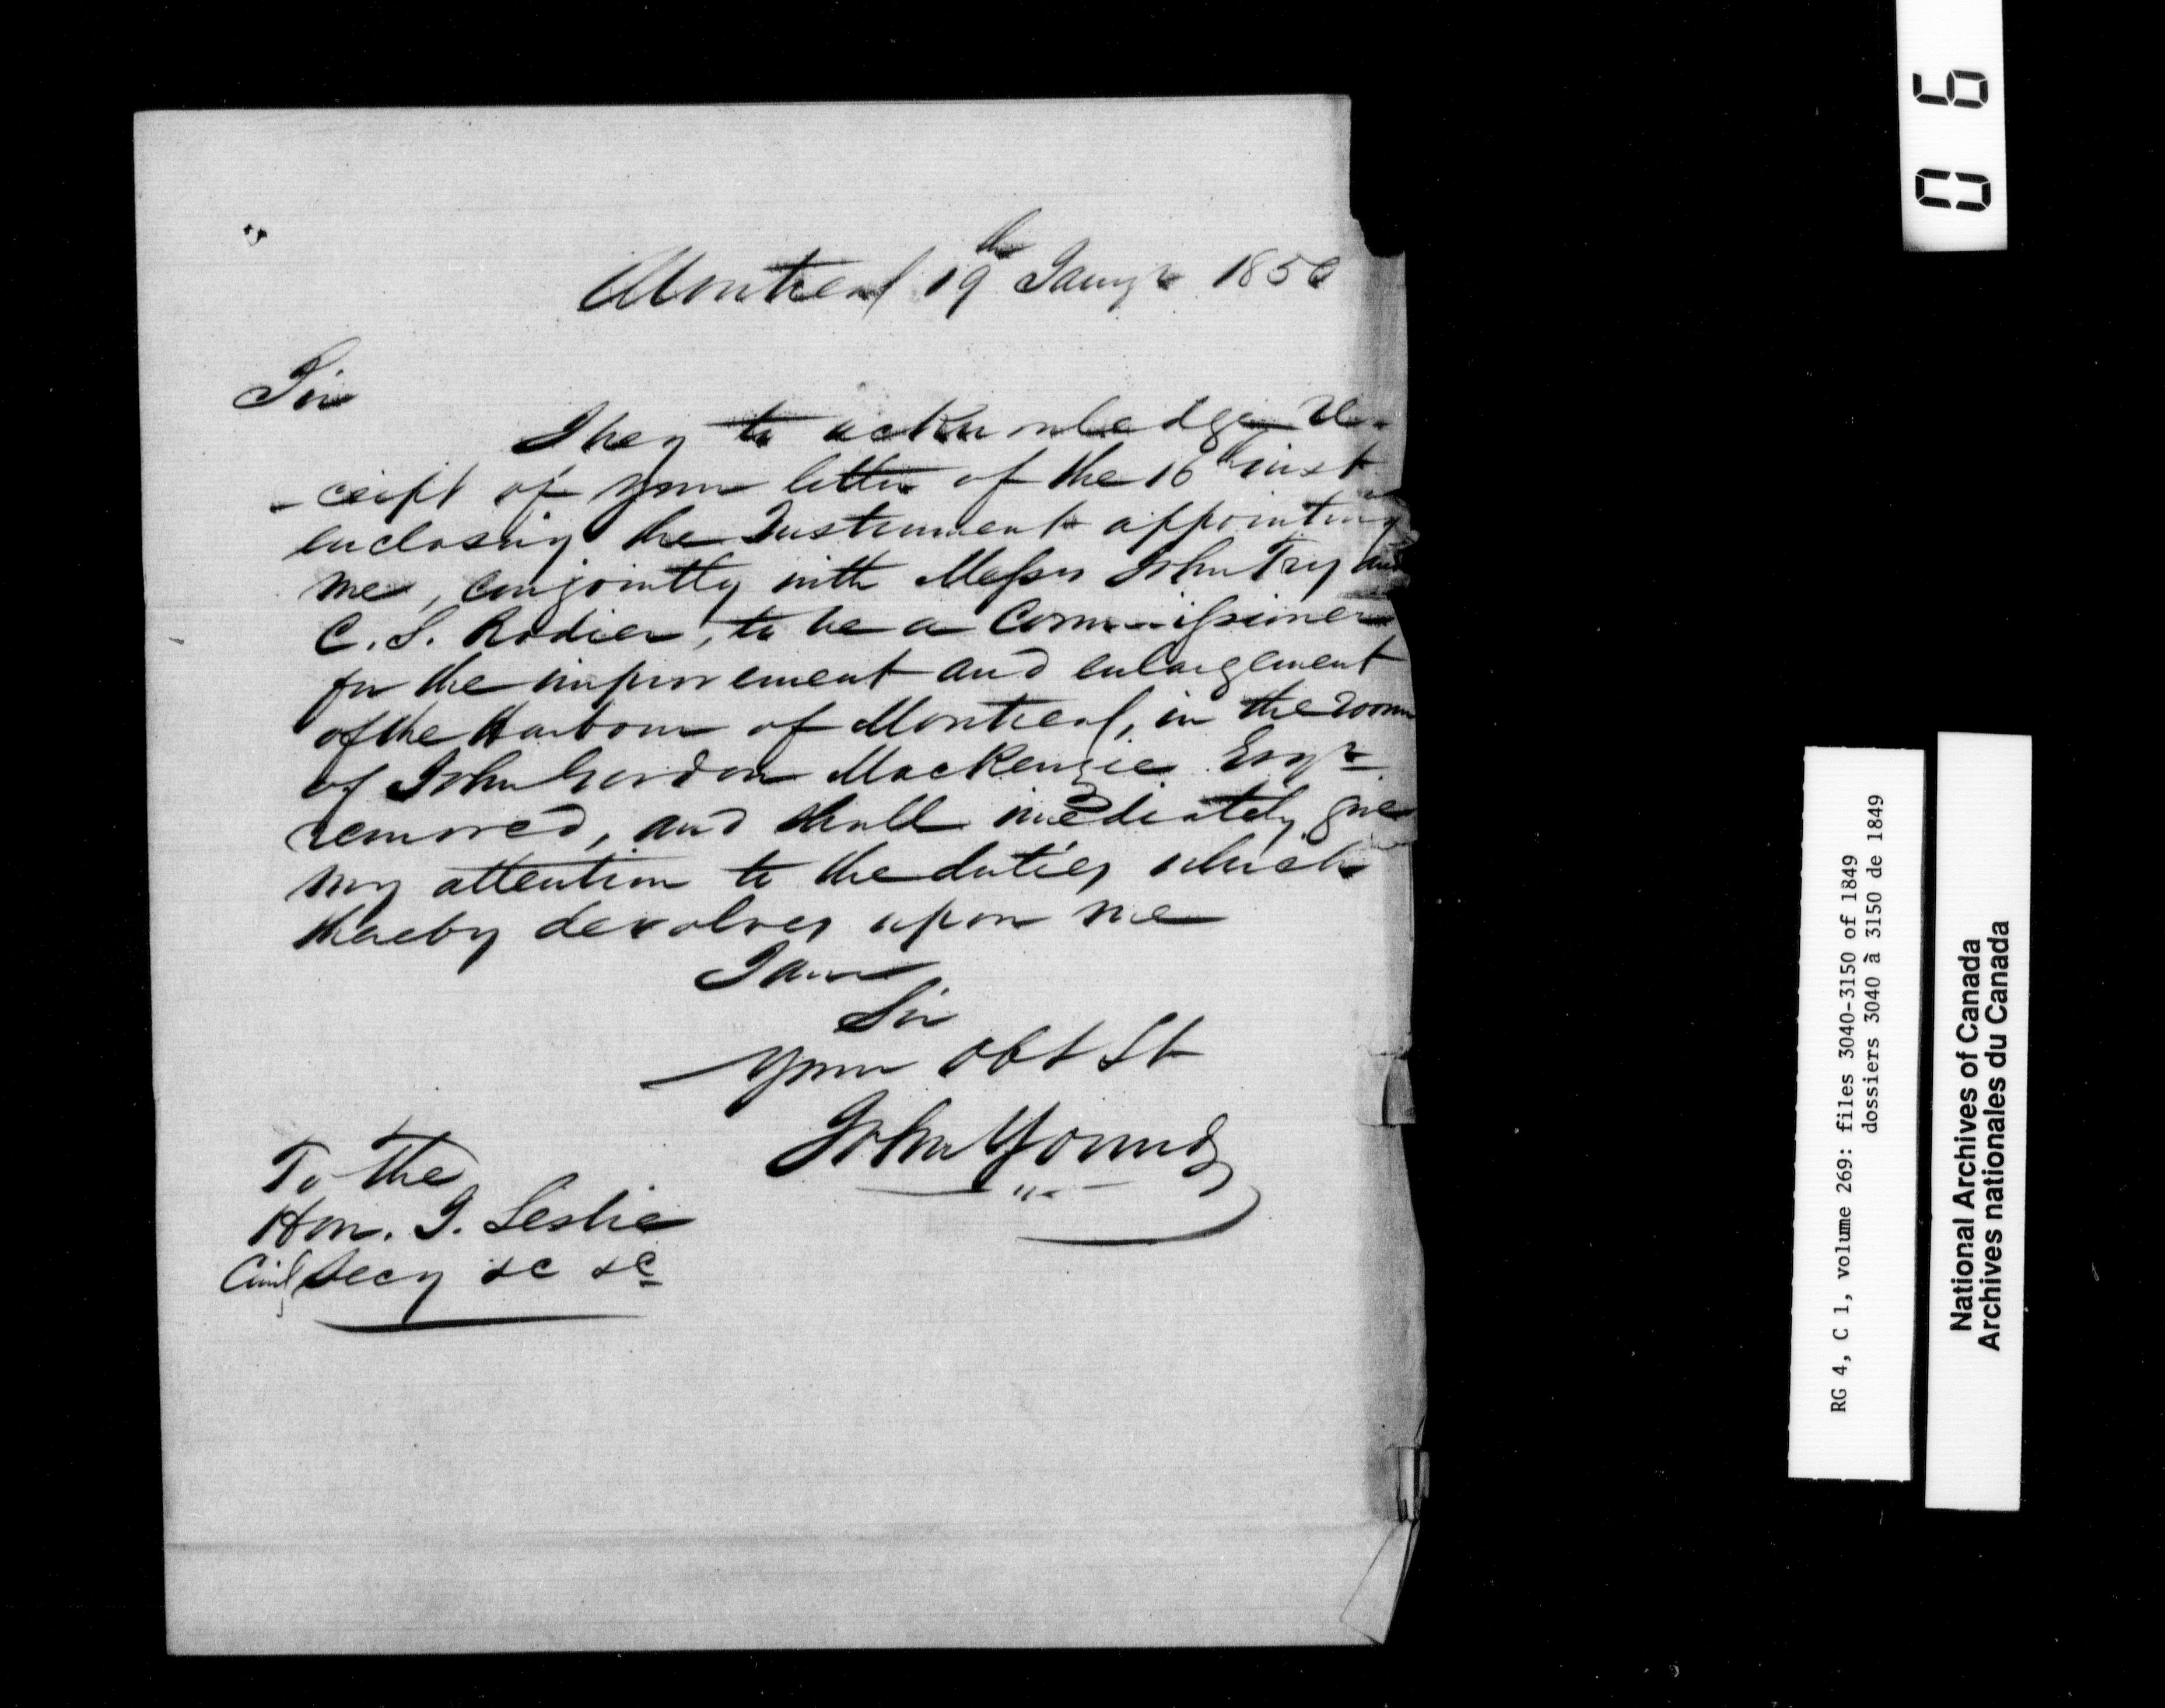 Montreal 19th Jany 1850
Sir
I beg to acknowledge re-
-ceipt of your letter of the 16th inst
enclosing the Instrument appointing
me, conjointly with Messrs John Try and
C. S. Rodier, to be a Commissioner
for the improvement and enlargement
of the Harbour of Montreal, in the room
of John Gordon MacKenzie Esqr
removed, and shall imediately give
my attention to the duties which
thereby devolves upon me
I am
Sir
Your Obt St
John Young
To the
Hon. J. Leslie
Civil Secy &c &c
06
RG 4, C 1, volume 269: files 3040-3150 of 1849
dossiers 3040 à 3150 de 1849
National Archives of Canada
Archives nationales du Canada